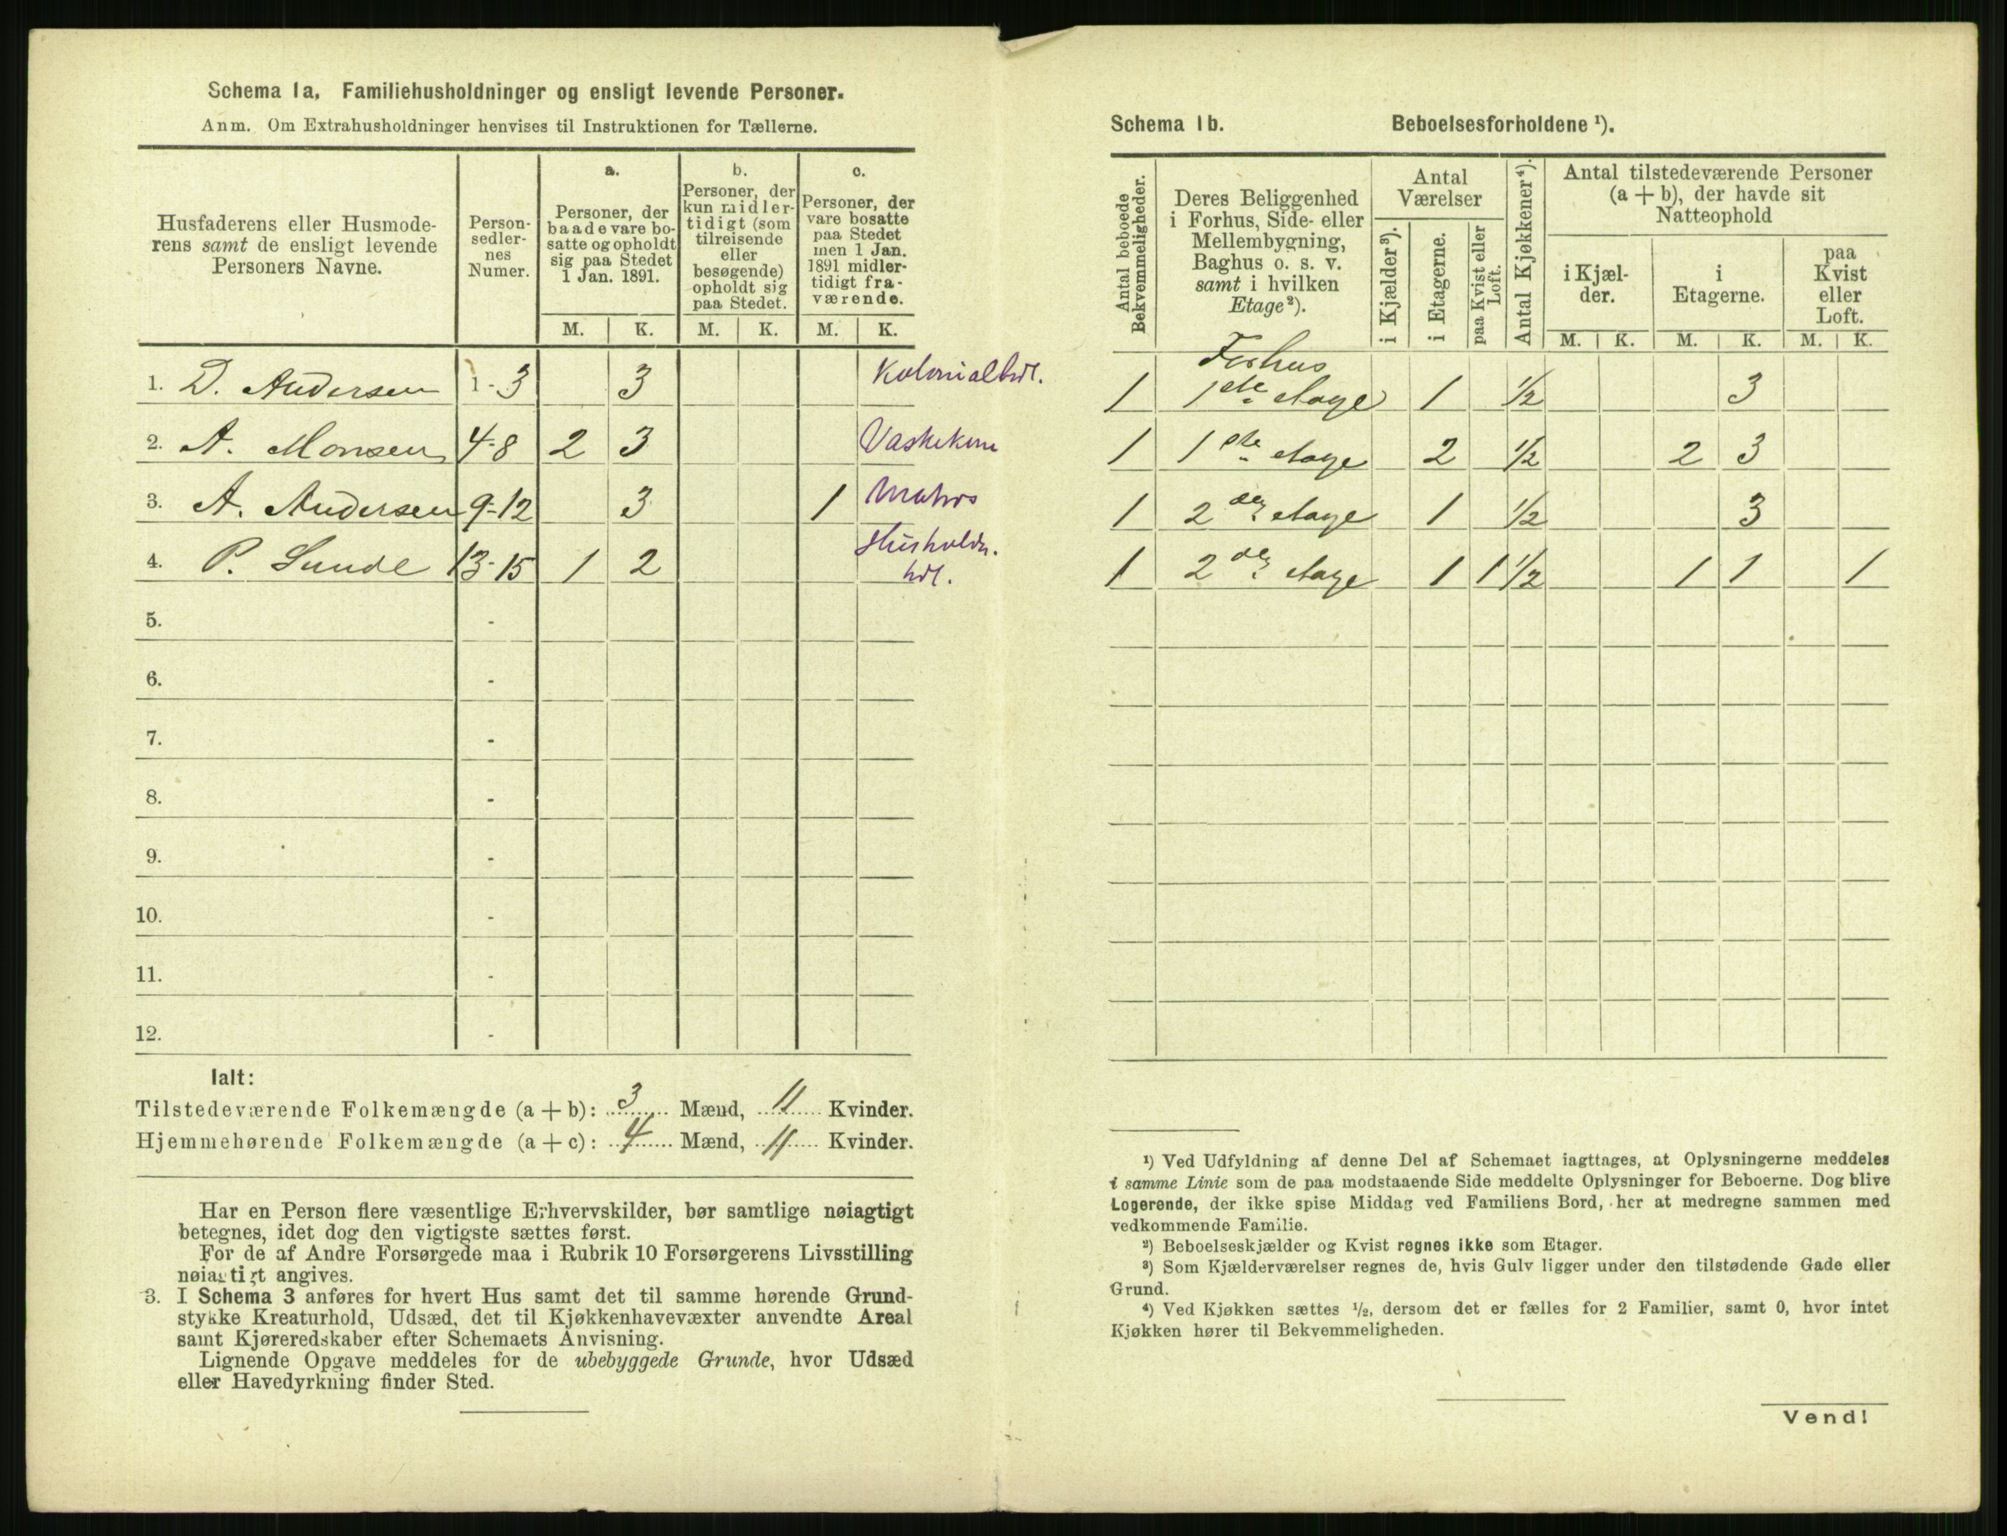 Schema 1a. Familiehusholdninger og ensligt levende Personer.
Anm. Om Extrahusholdninger henvises til Instruktionen for Tællerne.
Husfaderens eller Husmode-
rens samt de ensligt levende
Personers Navne.
Person-
sedler-
nes
Numer.
a.
Personer, der
baade vare bo-
satte og opholdt
sig paa Stedet
1 Jan. 1891.
b.
Personer, der
kun midler-
tidigt (som
tilreisende
eller
besøgende)
opholdt sig
paa Stedet.
c.
Personer, der
vare bosatte
paa Stedet
men 1 Jan.
1891 midler-
tidigt fra-
værende.
M. K. M. K. M. K.
1. D. Andersen 1-3 3 Kolonialhdl.
2. A. Monsen 4-8 2 3 Vaskekone
3. A. Andersen 9-12 3 1 Matros
4. P. Sunde 13-15 1 2 Husholdn.
hdl.
5. -
6. -
7. -
8. -
9. -
10. -
11. -
12. -
Ialt:
Tilstedeværende Folkemængde (a + b): 3 Mænd, 11 Kvinder.
Hjemmehørende Folkemængde (a + c): 4 Mænd, 11 Kvinder.
Har en Person flere væsentlige Erhvervskilder, bør samtlige nøiagtigt
betegnes, idet dog den vigtigste sættes først.
For de af Andre Forsørgede maa i Rubrik 10 Forsørgerens Livsstilling
nøiagtigt angives.
3. I Schema 3 anføres for hvert Hus samt det til samme hørende Grund-
stykke Kreaturhold, Udsæd, det til Kjøkkenhavevæxter anvendte Areal
samt Kjøreredskaber efter Schemaets Anvisning.
Lignende Opgave meddeles for de ubebyggede Grunde, hvor Udsæd
eller Havedyrkning finder Sted.
Schema 1b. Beboelsesforholdene ¹).
Antal beboede
Bekvemmeligheder.
Deres Beliggenhed
i Forhus, Side- eller
Mellembygning,
Baghus o. s. v.
samt i hvilken
Etage²).
Antal
Værelser
i Kjælder³).
i Etagerne.
paa Kvist eller
Loft.
Antal Kjøkkener⁴).
Antal tilstedeværende Personer
(a + b), der havde sit
Natteophold
i Kjæl-
der.
i
Etagerne.
paa
Kvist
eller
Loft.
M. K. M. K. M. K.
Forhus
1 1ste Etage 1 ½ 3
1 1ste Etage 2 ½ 2 3
1 2den Etage 1 ½ 3
1 2den Etage 1 1 ½ 1 1 1
¹) Ved Udfyldning af denne Del af Schemaet iagttages, at Oplysningerne meddeles
i samme Linie som de paa modstaaende Side meddelte Oplysninger for Beboerne. Dog blive
Logerende, der ikke spise Middag ved Familiens Bord, her at medregne sammen med
vedkommende Familie.
²) Beboelseskjælder og Kvist regnes ikke som Etager.
³) Som Kjælderværelser regnes de, hvis Gulv ligger under den tilstødende Gade eller
Grund.
⁴) Ved Kjøkken sættes ½, dersom det er fælles for 2 Familier, samt 0, hvor intet
Kjøkken hører til Bekvemmeligheden.
Vend!